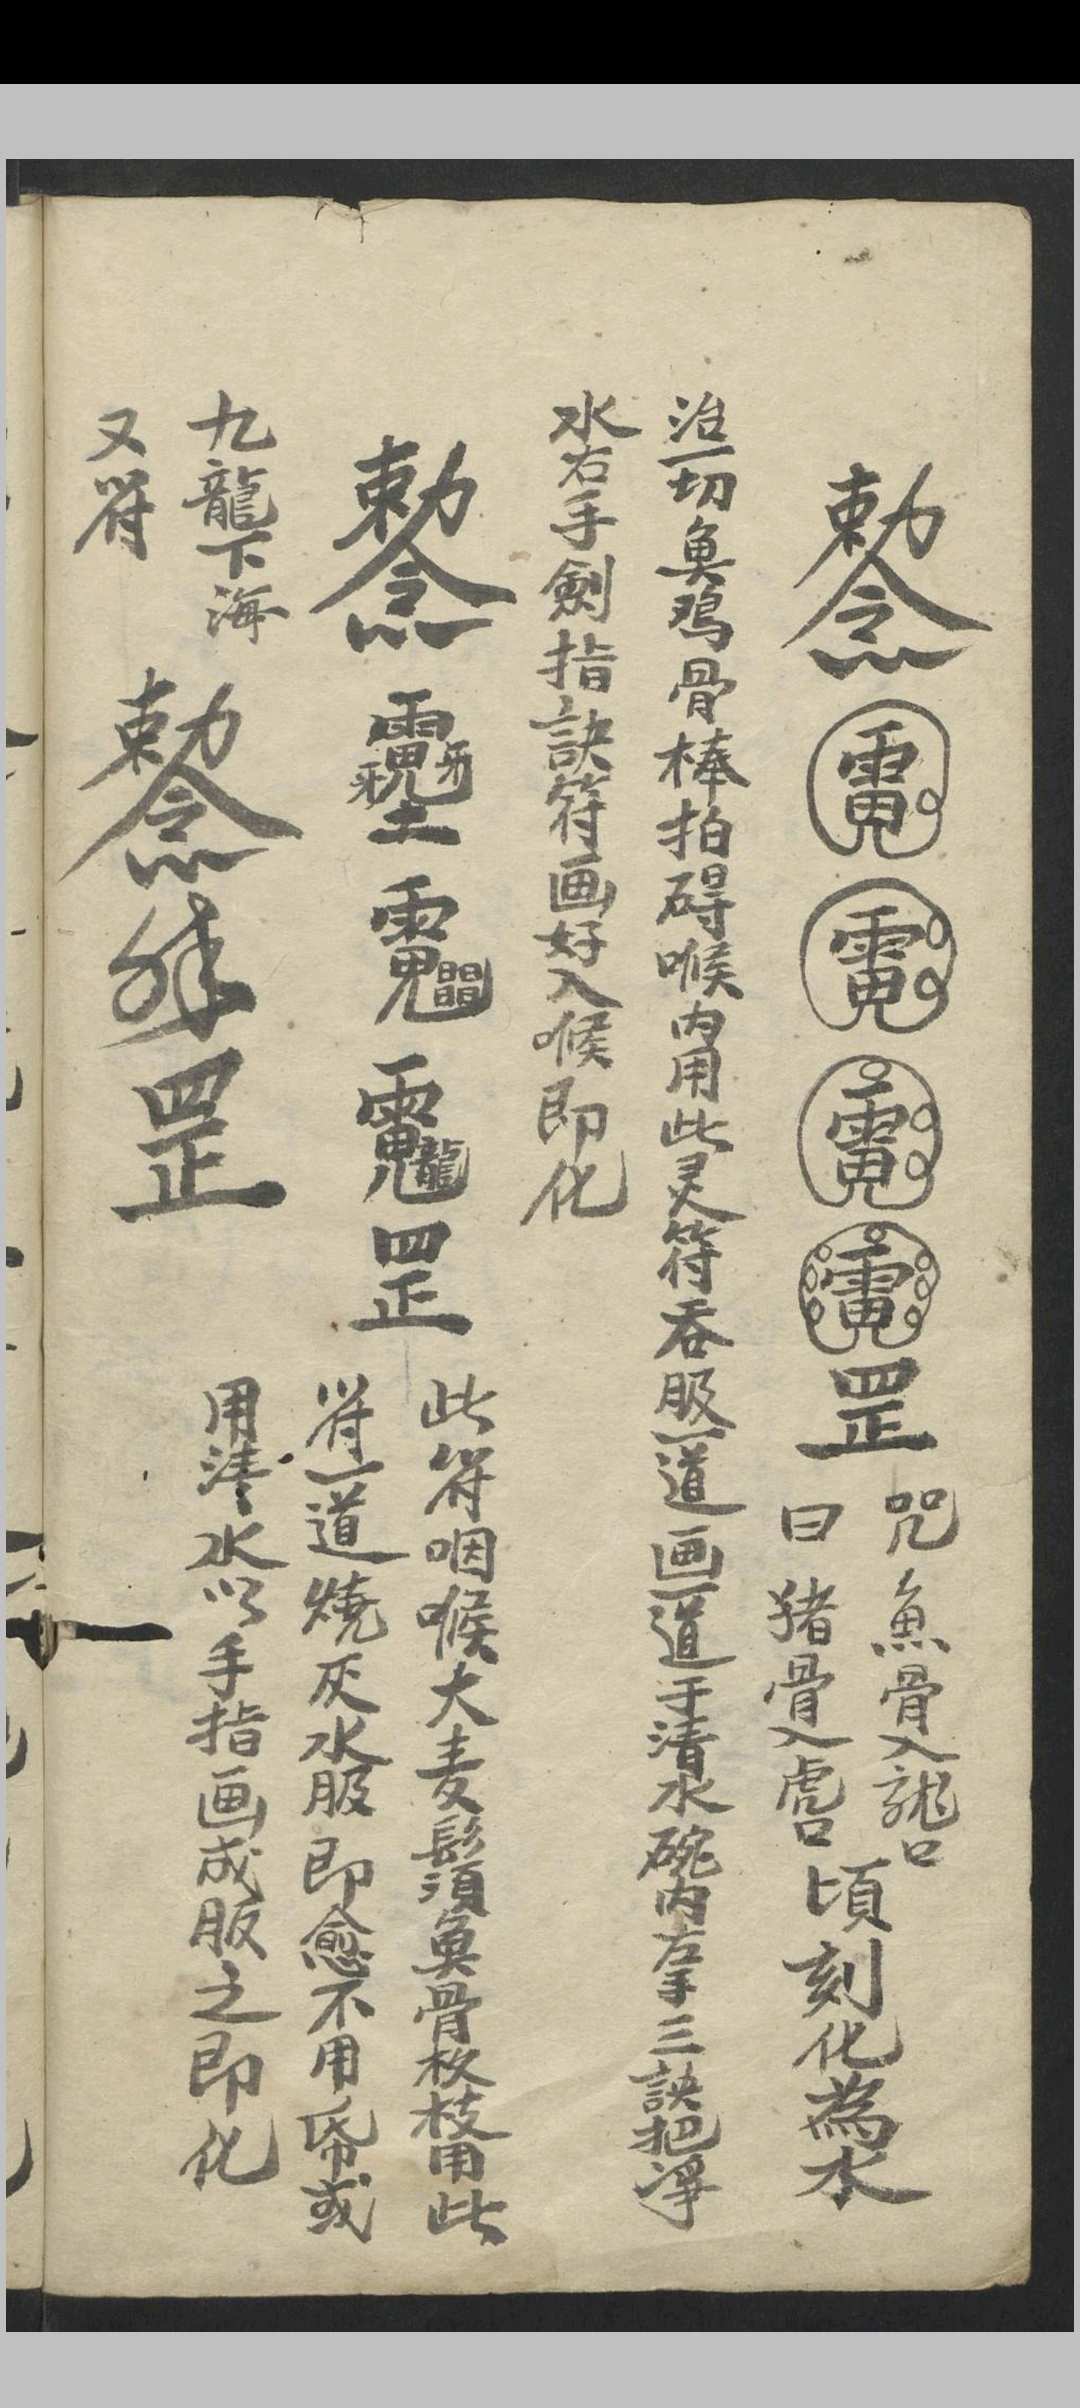 勅令 罡
咒 魚骨入龍口
曰 猪骨入虎口
頃刻化為水
治一切魚鸡骨棒拍碍喉内用此灵符吞服一道画一道于清水碗内左手三訣把淨
水右手劍指訣符画好入喉即化
勅令 罡
此符咽喉大麦鬚須魚骨枚枝用此
符一道燒灰水服即愈不用帋或
用清水以手指画成服之即化
九龍下海
又符
勅令 罡